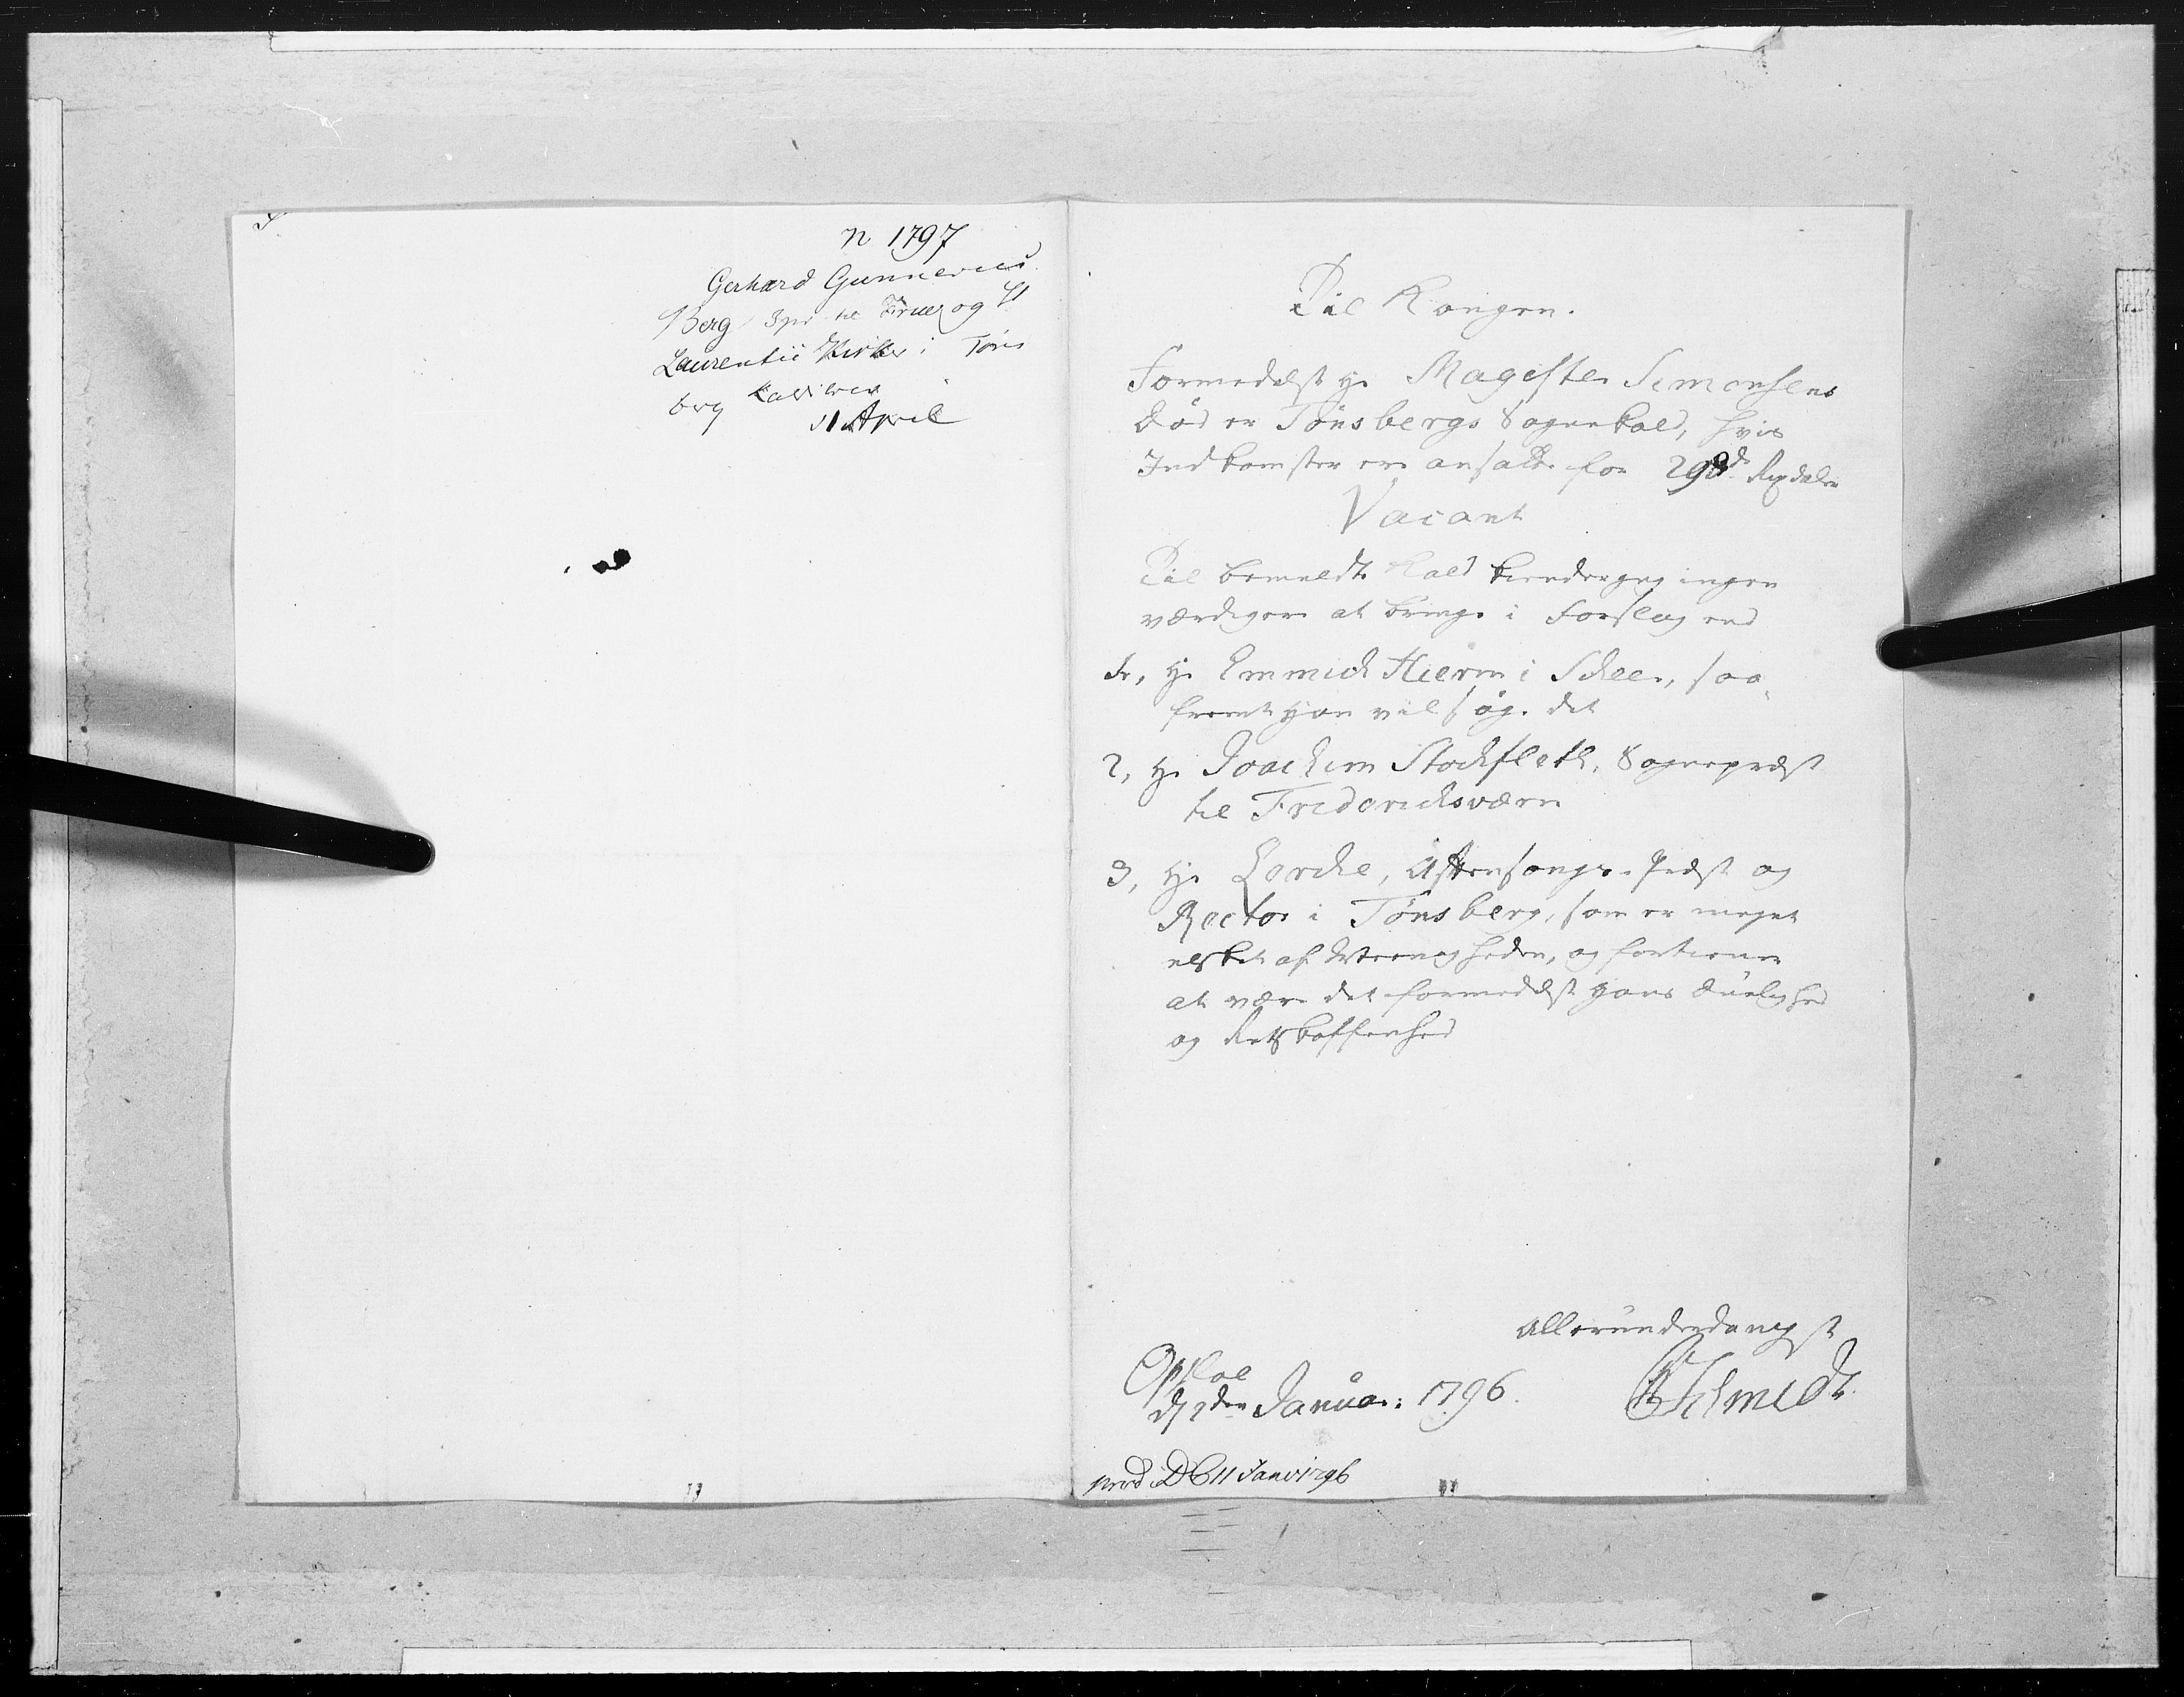 n 1797
Gerhard Gunnerus
Berg Spr til Frue og St
Laurentii Kirker i Töns
berg
11 April
Til Kongen.
Formedelst Hr Magister Simonsens
Död er Tönsbergs Sognekald, hvis
Indkomster ere ansatte for 298de Rixdaler
Vacant
Til bemeldte Kald kiender jeg ingen
værdigere at bringe i Forslag end
1, Hr Emmich Hierm i Skee, saa-
fremt Han vil söge det
2, Hr Joachim Stockfleth, Sognepræst
til Friderichsværn
3, Hr Lorche, Aftensangs-Præst og
Rector i Tönsberg, som er meget
elsket af Meenigheden, og fortiener
at være det formedelst Hans Duelighed
og Retskaffenhed
Allerunderdanigst
Opsloe
d 2den Januar: 1796.
Schmidt.
prod i D C 11 Janv 1796